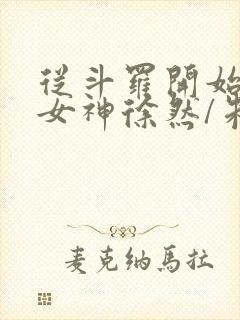 從斗羅開始
女神徐然/
麦克纳馬拉